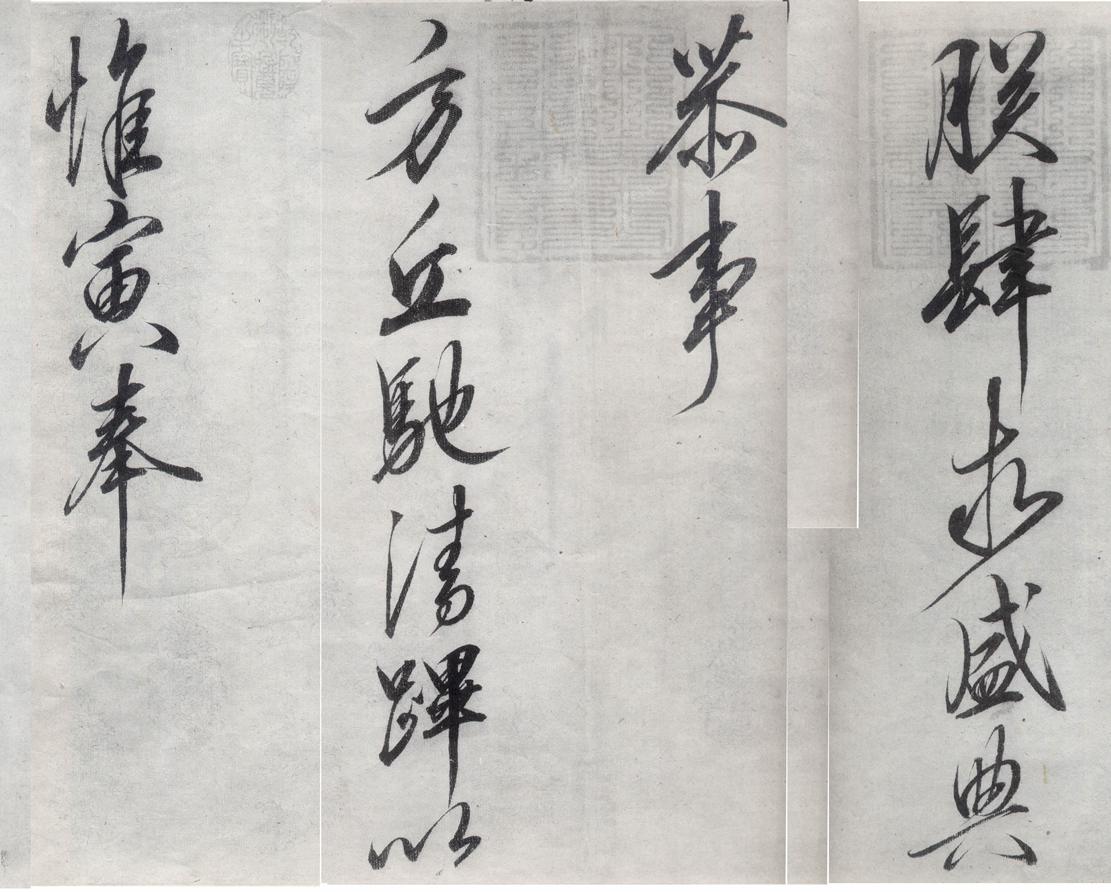 朕肆求盛典
恭事
方丘馳清蹕以
惟寅奉